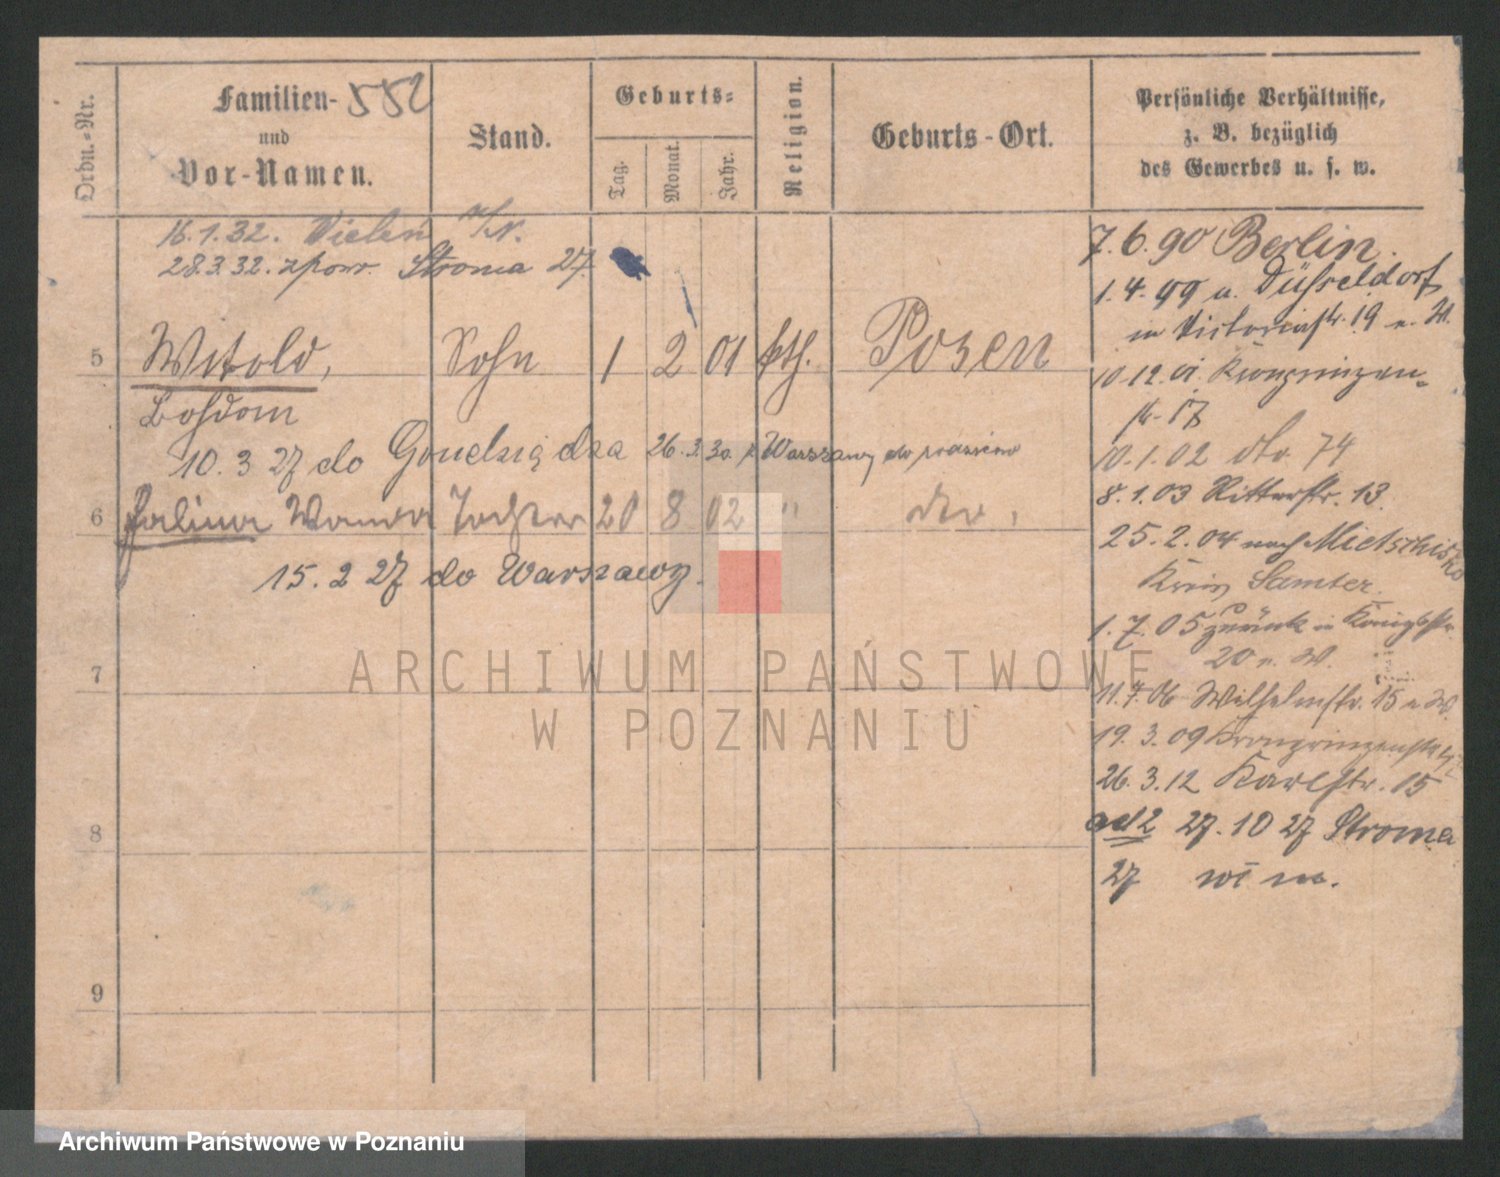 Ordn.-Nr.
Familien-
und
Vor-Namen.
552
Stand.
Geburts-
Tag.
Monat.
Jahr.
Religion.
Geburts-Ort.
Persönliche Verhältnisse,
z. B. bezüglich
des Gewerbes u. s. w.
16.1.32. Wieleń n/N.
28.3.32. z powr. Stroma 27.
5 Witold, Sohn 1 2 01 kth. Posen
Bohdan
10. 3 27 do Grudziądza 26. 3. 30. z Warszawy do
6 Halina Wanda Tochter 20 8 02 " dto.
15. 2 27 do Warszawy.
7
8
9
7. 6. 90 Berlin.
1. 4. 99 u. Düsseldorf
Victoriastr. 19 n. W.
10.12.01. Kronprinzen-
str. 17
10. 1. 02 dto. 74
8. 1. 03 Ritterstr. 13.
25. 2. 04 nach Mietschisko
Kreis Samter.
1. 7. 05 zurück in Königstr.
20 n. W.
11.7.06 Wilhelmstr. 15 n W.
19. 3. 09 Kronprinzenstr.
26. 3. 12 Karlstr. 15
ad 2 27. 10 27 Stroma
27
ARCHIWUM PAŃSTWOWE
W POZNANIU
Archiwum Państwowe w Poznaniu